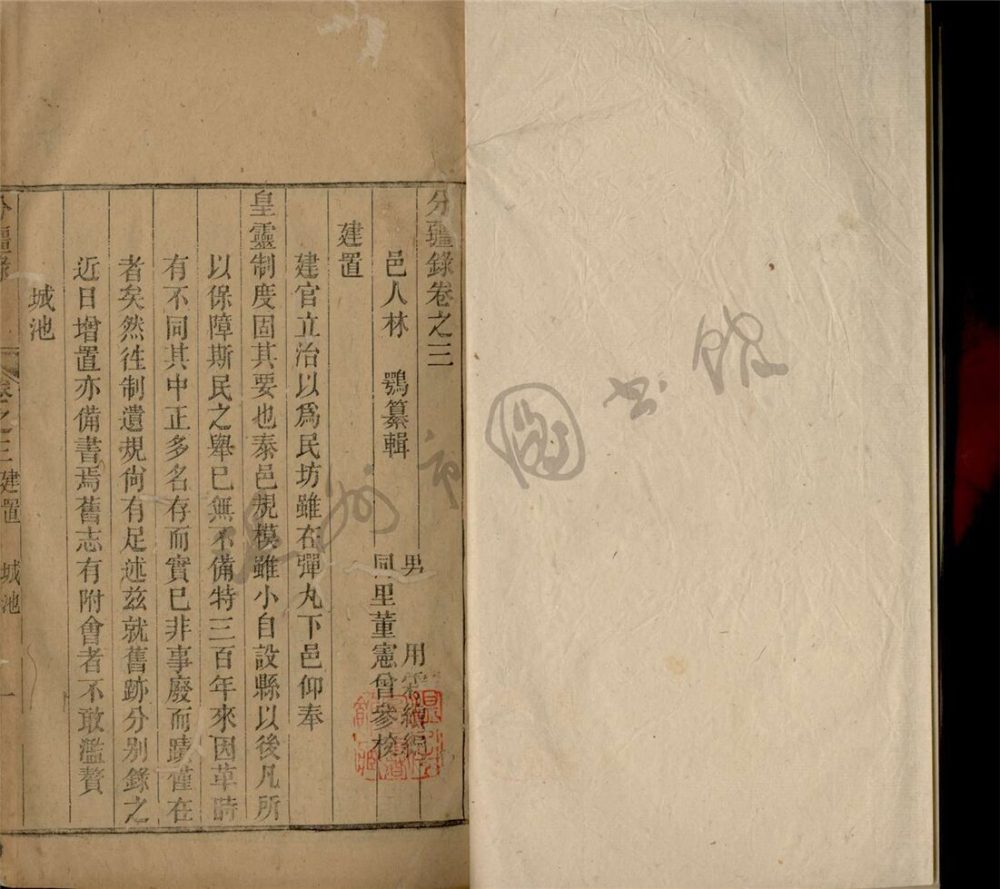 分疆錄卷之三
邑人林　鶚纂輯
男　用霖續編
同里董憲曾參校
建置
建官立治以爲民坊雖在彈丸下邑仰奉
皇靈制度固其要也泰邑規模雖小自設縣以後凡所
以保障斯民之舉已無不備特三百年來因革時
有不同其中正多名存而實已非事廢而蹟僅在
者矣然往制遺規尙有足述茲就舊跡分別錄之
近日增置亦備書焉舊志有附會者不敢濫贅
城池
分疆錄　卷之三建置　城池　一
溫州市圖書館